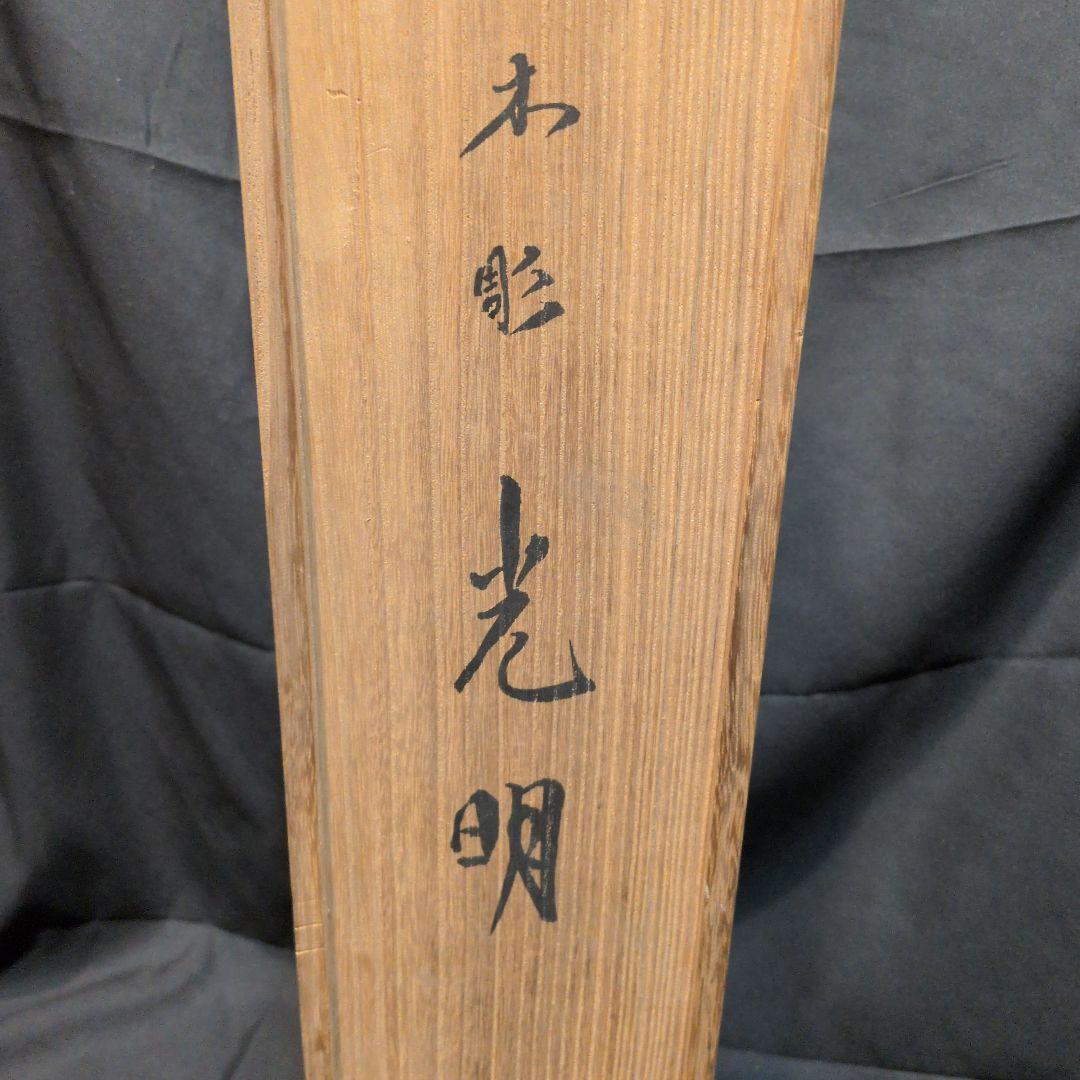 木彫光明